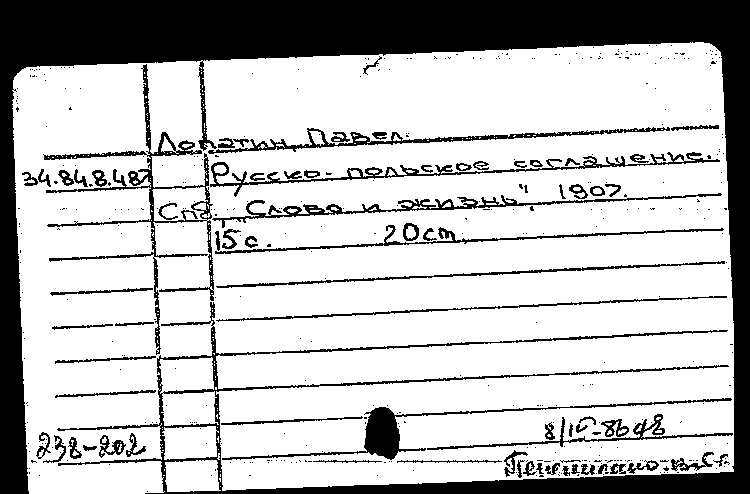 Лопатин, Павел.
34.84.8.487 Русско-польское соглашение.
Спб. "Слово и жизнь", 1907.
15 с. 20 cm.
238-202